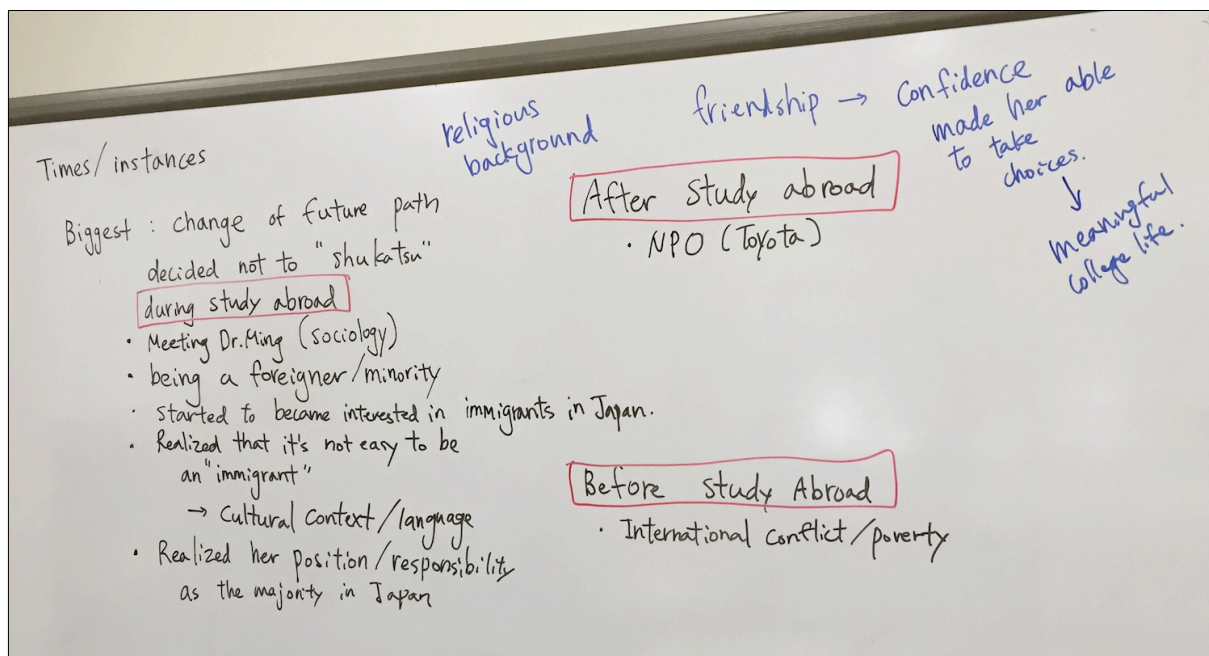 Times/instances
Biggest : change of future path
decided not to "shukatsu"
during study abroad
• Meeting Dr.Ming (sociology)
• being a foreigner/minority
• started to became interested in immigrants in Japan.
• Realized that it's not easy to be
an "immigrant"
→ Cultural context/language
• Realized her position/responsibility
as the majority in Japan
religious
background
friendship → confidence
made her able
to take
choices.
↓
meaningful
college life.
After study abroad
• NPO (Toyota)
Before study Abroad
• International conflict/poverty